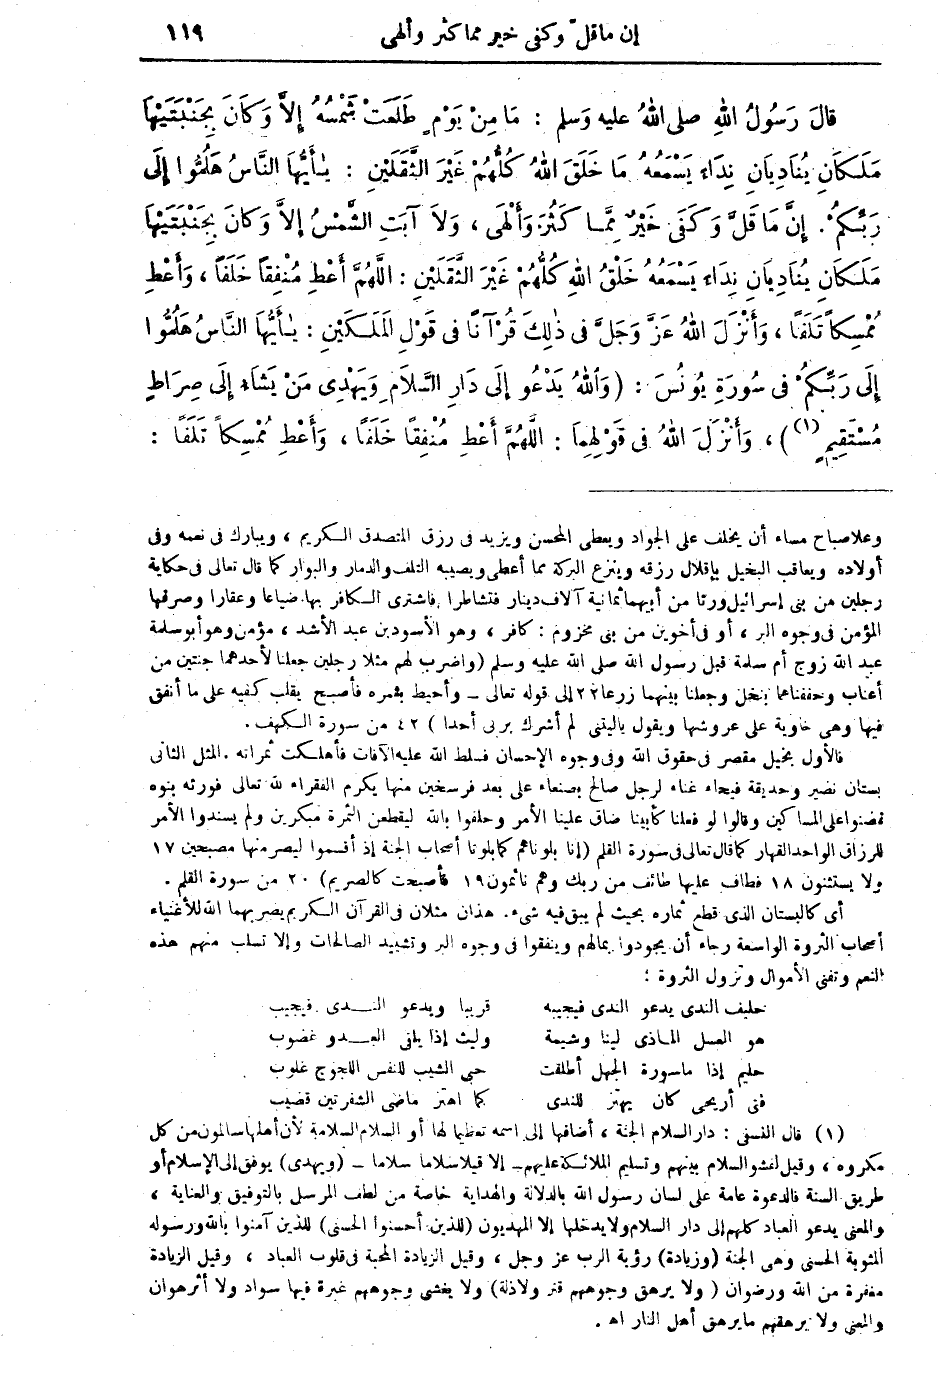 إن ماقلّ وكفى خير مماكثر وألهى ١١٩
قالَ رَسُولُ اللهِ صلى اللهُ عليه وَسلم : مَا مِنْ يَوْمٍ طَلَعَتْ شَمْسُهُ إِلاَّ وَكَانَ بِجَنْبَتَيْهَا
مَلَكَانِ يُنَادِيَانِ نِدَاء يَسْمَعُهُ مَا خَلَقَ اللهُ كُلُّهُمْ غَيْرَ الثَّقَلَيْنِ : يٰأَيُّهَا النَّاسُ هَلُمُّوا إِلَى
رَبِّكُمْ. إِنَّ مَا قَلَّ وَكَفَى خَيْرٌ مِمَّا كَثُرَ وَأَلْهَى ، وَلاَ آبَتِ الشَّمْسُ إِلاَّ وَكَانَ بِجَنْبَتَيْهَا
مَلَكَانِ يُنَادِيَانِ نِدَاء يَسْمَعُهُ خَلْقُ اللهِ كُلُّهُمْ غَيْرَ الثَّقَلَيْنِ : اللَّهُمَّ أَعْطِ مُنْفِقًا خَلَفًا ، وَأَعْطِ
مُمْسِكًا تَلَفًا ، وَأَنْزَلَ اللهُ عَزَّ وَجَلَّ فى ذٰلِكَ قُرْآنًا فى قَوْلِ الْمَلَكَيْنِ : يٰأَيُّهَا النَّاسُ هَلُمُّوا
إِلَى رَبِّكُمْ فى سُورَةِ يُونُسَ : (وَاللهُ يَدْعُو إِلَى دَارِ السَّلَامِ وَيَهْدِى مَنْ يَشَاءُ إِلَى صِرَاطٍ
مُسْتَقِيمٍ (١)) ، وَأَنْزَلَ اللهُ فى قَوْلِهِمَا : اللَّهُمَّ أَعْطِ مُنْفِقًا خَلَفًا ، وَأَعْطِ مُمْسِكاً تَلَفًا :
وعلا صباح مساء أن يخلف على الجواد ويعطى المحسن ويزيد فى رزق المتصدق الكريم ، ويبارك فى نعمه وفى
أولاده ويعاقب البخيل بإقلال رزقه وينزع البركة مما أعطى ويصيبه التلف والدمار والبوار كما قال تعالى فى حكاية
رجلين من بنى إسرائيل ورثا من أبيهما ثمانية آلاف دينار فتشاطرا فاشترى الكافر بها ضياعا وعقارا وصرفها
المؤمن فى وجوه البر ، أو فى أخوين من بنى مخزوم : كافر ، وهو الأسود بن عبد الأشد ، مؤمن وهو أبو سلمة
عبد الله زوج أم سلمة قبل رسول الله صلى الله عليه وسلم (واضرب لهم مثلا رجلين جعلنا لأحدهما جنتين من
أعناب وحففناهما بنخل وجعلنا بينهما زرعا ٣٢ إلى قوله تعالى ـ وأحيط بثمره فأصبح يقلب كفيه على ما أنفق
فيها وهى خاوية على عروشها ويقول ياليتنى لم أشرك بربى أحدا ) ٤٢ من سورة الكهف .
فالأول بخيل مقصر فى حقوق الله وفى وجوه الإحسان فسلط الله عليه الآفات فأهلكت ثمراته . المثل الثانى
بستان نضير وحديقة فيحاء غناء لرجل صالح بصنعاء على بعد فرسخين منها يكرم الفقراء لله تعالى فورثه بنوه
فضنوا على المساكين وقالوا لو فعلنا كأبينا ضاق علينا الأمر وحلفوا بالله ليقطعن الثمرة مبكرين ولم يسندوا الأمر
للرزاق الواحد القهار كما قال تعالى فى سورة القلم (إنا بلوناهم كما بلونا أصحاب الجنة إذ أقسموا ليصرمنها مصبحين ١٧
ولا يستثنون ١٨ فطاف عليها طائف من ربك وهم نائمون ١٩ فأصبحت كالصريم) ٢٠ من سورة القلم .
أى كالبستان الذى قطع ثماره بحيث لم يبق فيه شىء. هذان مثلان فى القرآن الكريم يضربهما الله للأغنياء
أصحاب الثروة الواسعة رجاء أن يجودوا بمالهم وينفقوا فى وجوه البر وتشييد الصالحات وإلا تسلب منهم هذه
النعم وتفنى الأموال وتزول الثروة :
حليف الندى يدعو الندى فيجيبه قريبا ويدعو النـدى فيجيب
هو العسل الماذى لينا وشيمة وليث إذا يلقى العـدو غضوب
حليم إذا ماسورة الجهل أطلقت حبى الشيب للنفس اللجوج غلوب
فتى أريحى كان يهتز للندى كما اهتز ماضى الشفرتين قضيب
(١) قال النسفى : دار السلام الجنة ، أضافها إلى اسمه تعظيما لها أو السلام السلامة لأن أهلها سالمون من كل
مكروه ، وقيل لفشو السلام بينهم وتسليم الملائكة عليهم ـ إلا قيلا سلاما سلاما ـ (ويهدى) يوفق إلى الإسلام أو
طريق السنة فالدعوة عامة على لسان رسول الله بالدلالة والهداية خاصة من لطف المرسل بالتوفيق والعناية ،
والمعنى يدعو العباد كلهم إلى دار السلام ولا يدخلها إلا المهديون (للذين أحسنوا الحسنى) للذين آمنوا بالله ورسوله
المثوبة الحسنى وهى الجنة (وزيادة) رؤية الرب عز وجل ، وقيل الزيادة المحبة فى قلوب العباد ، وقيل الزيادة
مغفرة من الله ورضوان ( ولا يرهق وجوههم قتر ولاذلة) ولا يغشى وجوههم غبرة فيها سواد ولا أثر هوان
والمعنى ولا يرهقهم مايرهق أهل النار اهـ .